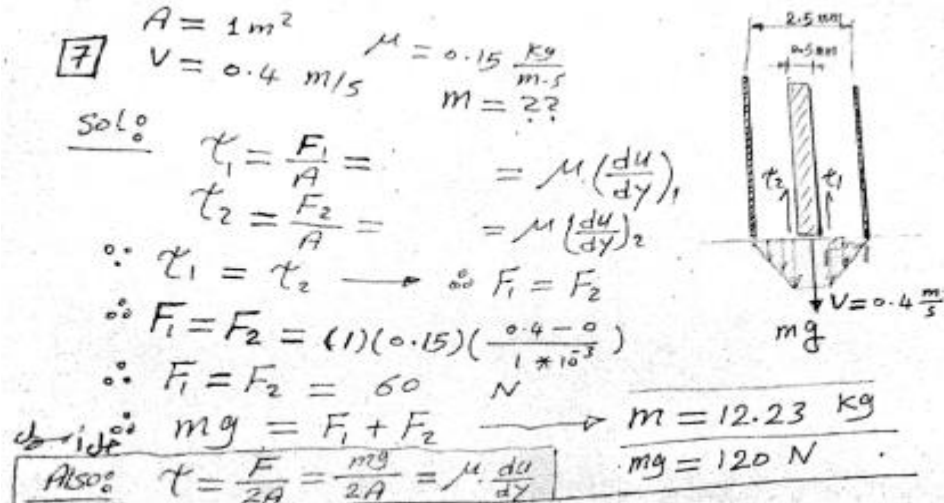 A = 1 m²
7 V = 0.4 m/s μ = 0.15 kg/m·s
m = ??
Sol:
τ₁ = F₁/A = = μ.(du/dy)₁
τ₂ = F₂/A = = μ(du/dy)₂
∵ τ₁ = τ₂ → ∴ F₁ = F₂
∴ F₁ = F₂ = (1)(0.15)(0.4 - 0 / 1 * 10⁻³)
∴ F₁ = F₂ = 60 N
∴ mg = F₁ + F₂ → m = 12.23 kg
mg = 120 N
Also: τ = F/2A = mg/2A = μ. du/dy
2.5 mm
0.5 mm
τ₂ τ₁
V = 0.4 m/s
mg